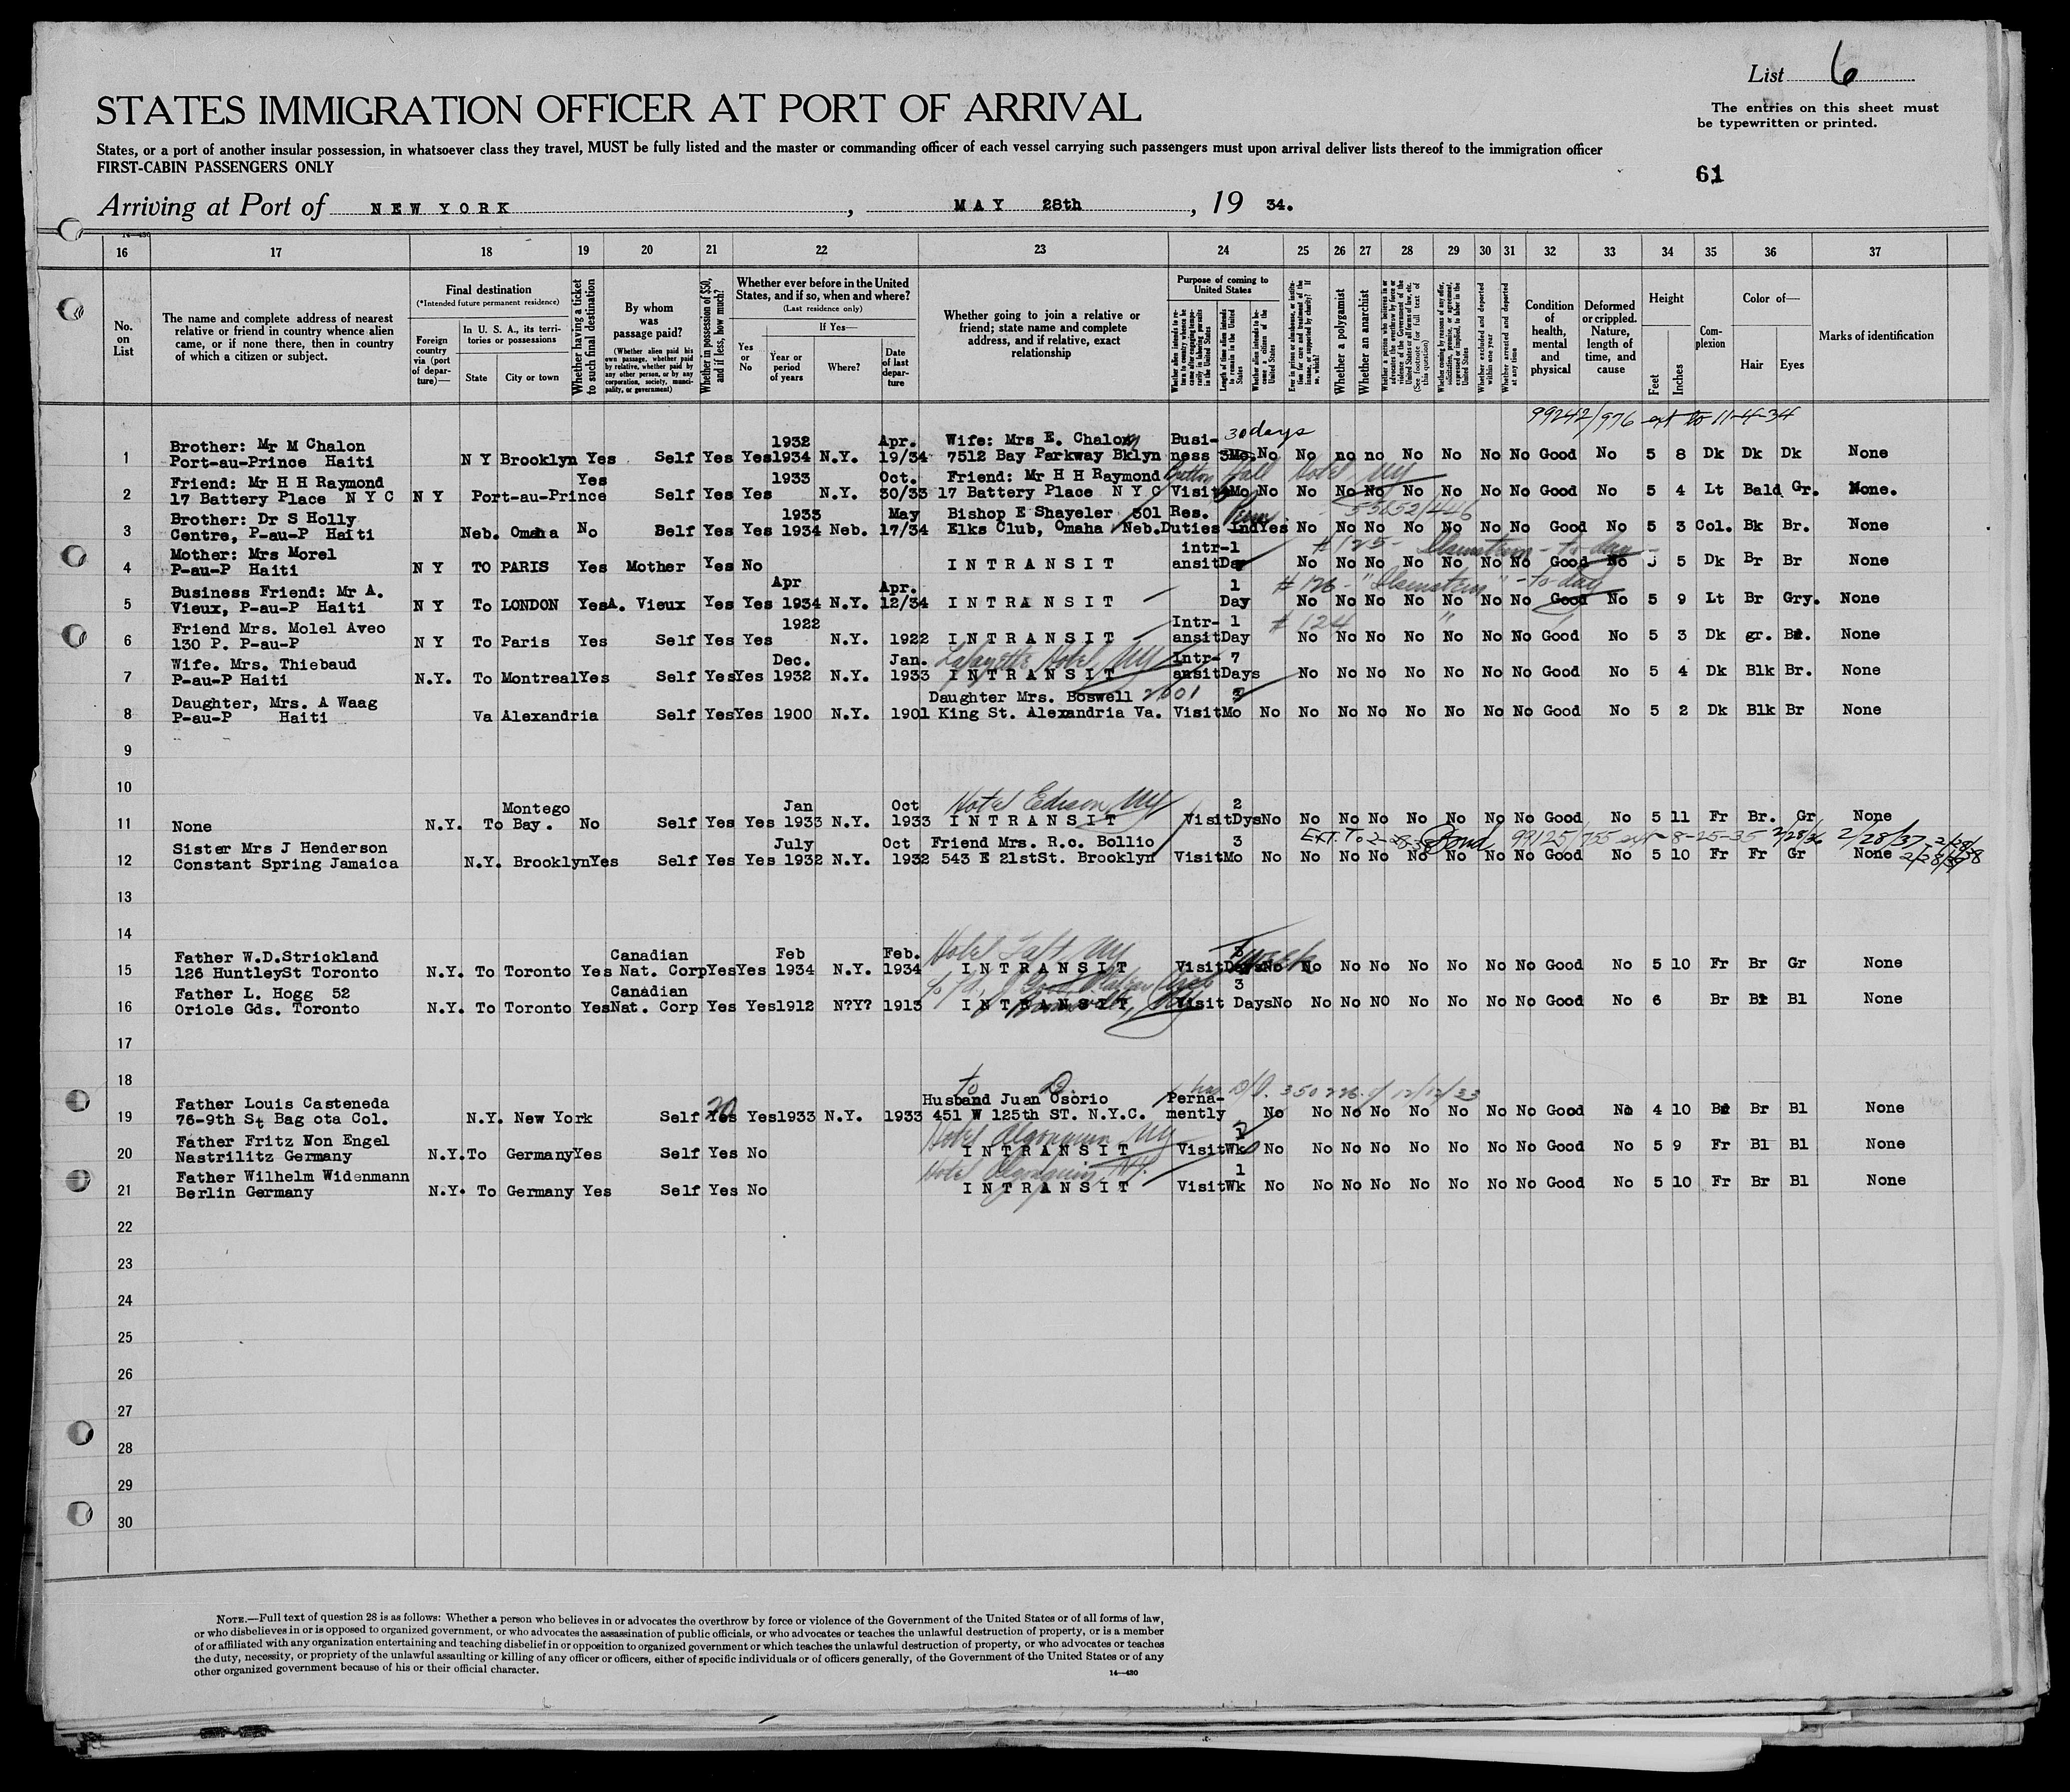 List 6
STATES IMMIGRATION OFFICER AT PORT OF ARRIVAL
The entries on this sheet must
be typewritten or printed.
States, or a port of another insular possession, in whatsoever class they travel, MUST be fully listed and the master or commanding officer of each vessel carrying such passengers must upon arrival deliver lists thereof to the immigration officer
FIRST-CABIN PASSENGERS ONLY
61
Arriving at Port of NEW YORK, MAY 28th, 19 34.
14—430
16 17 18 19 20 21 22 23 24 25 26 27 28 29 30 31 32 33 34 35 36 37
No. on List
The name and complete address of nearest relative or friend in country whence alien came, or if none there, then in country of which a citizen or subject.
Final destination
(*Intended future permanent residence)
Foreign country via (port of departure)—
In U. S. A., its territories or possessions
State
City or town
Whether having a ticket to such final destination
By whom was passage paid?
(Whether alien paid his own passage, whether paid by relative, whether paid by any other person, or by any corporation, society, municipality, or government)
Whether in possession of $50, and if less, how much?
Whether ever before in the United States, and if so, when and where?
(Last residence only)
Yes or No
If Yes—
Year or period of years
Where?
Date of last departure
Whether going to join a relative or friend; state name and complete address, and if relative, exact relationship
Purpose of coming to United States
Length of time alien intends to remain in the United States
Whether alien intends to become a citizen of the United States
Whether a polygamist
Whether an anarchist
Whether excluded and deported within one year
Whether arrested and deported at any time
Condition of health, mental and physical
Deformed or crippled. Nature, length of time, and cause
Height
Feet
Inches
Complexion
Color of—
Hair
Eyes
Marks of identification
99242/976 ext to 11-4-34
Brother: Mr M Chalon 1932 Apr. Wife: Mrs E. Chalon Busi- 30 days
1 Port-au-Prince Haiti N Y Brooklyn Yes Self Yes Yes 1934 N.Y. 19/34 7512 Bay Parkway Bklyn ness 3Mo. No No no no No No No No Good No 5 8 Dk Dk Dk None
Friend: Mr H H Raymond Yes 1933 Oct. Friend: Mr H H Raymond Hall Hotel, NY
2 17 Battery Place N Y C N Y Port-au-Prince Self Yes Yes N.Y. 30/33 17 Battery Place N Y C Visit Mo No No No No No No No No Good No 5 4 Lt Bald Gr. None.
Brother: Dr S Holly 1933 May Bishop E Shayeler 501 Res. Perm 55652/446
3 Centre, P-au-P Haiti Neb. Omaha No Self Yes Yes 1934 Neb. 17/34 Elks Club, Omaha Neb. Duties Ind Yes No No No No No No No Good No 5 3 Col. Bk Br. None
Mother: Mrs Morel intr- 1 #125- to day
4 P-au-P Haiti N Y TO PARIS Yes Mother Yes No INTRANSIT ansit Day No No No No No No No Good No 5 5 Dk Br Br None
Business Friend: Mr A. Apr Apr. 1 #126 - " " - to day
5 Vieux, P-au-P Haiti N Y To LONDON Yes A. Vieux Yes Yes 1934 N.Y. 12/34 INTRANSIT Day No No No No No No No Good No 5 9 Lt Br Gry. None
Friend Mrs. Molel Aveo 1922 Intr- 1 #124 "
6 130 P. P-au-P N Y To Paris Yes Self Yes Yes N.Y. 1922 INTRANSIT ansit Day No No No No No No No Good No 5 3 Dk gr. Br. None
Wife. Mrs. Thiebaud Dec. Jan. Lafayette Hotel, NY Intr- 7
7 P-au-P Haiti N.Y. To Montreal Yes Self Yes Yes 1932 N.Y. 1933 INTRANSIT ansit Days No No No No No No No Good No 5 4 Dk Blk Br. None
Daughter, Mrs. A Waag Daughter Mrs. Boswell 2601
8 P-au-P Haiti Va Alexandria Self Yes Yes 1900 N.Y. 1901 King St. Alexandria Va. Visit Mo No No No No No No No No Good No 5 2 Dk Blk Br None
9
10
Montego Jan Oct Hotel Edison NY 2
11 None N.Y. To Bay. No Self Yes Yes 1933 N.Y. 1933 INTRANSIT Visit Dys No No No No No No No No Good No 5 11 Fr Br. Gr None
Sister Mrs J Henderson July Oct Friend Mrs. R.c. Bollio 3 EXT. To 2-28-38 Bond 99125/755 ext 8-25-35 2/28/36 2/28/37
12 Constant Spring Jamaica N.Y. Brooklyn Yes Self Yes Yes 1932 N.Y. 1932 543 E 21stSt. Brooklyn Visit Mo No No No No No No No No Good No 5 10 Fr Fr Gr None
13
14
Father W.D.Strickland Canadian Feb Feb. Hotel Taft NY
15 126 HuntleySt Toronto N.Y. To Toronto Yes Nat. Corp Yes Yes 1934 N.Y. 1934 INTRANSIT Visit Days No No No No No No No No Good No 5 10 Fr Br Gr None
Father L. Hogg 52 Canadian 3
16 Oriole Gds. Toronto N.Y. To Toronto Yes Nat. Corp Yes Yes 1912 N?Y? 1913 INTRANSIT Visit Days No No No NO No No No No Good No 6 Br Br Bl None
17
18
to
Father Louis Casteneda 20 Husband Juan Osorio Perna- 350226 12/12/33
19 76-9th St Bag ota Col. N.Y. New York Self Yes Yes 1933 N.Y. 1933 451 W 125th ST. N.Y.C. mently No No No No No No No No Good No 4 10 Br Br Bl None
Father Fritz Von Engel Hotel Algonquin NY
20 Nastrilitz Germany N.Y. To Germany Yes Self Yes No INTRANSIT Visit Wk No No No No No No No No Good No 5 9 Fr Bl Bl None
Father Wilhelm Widenmann Hotel Algonquin, NY. 1
21 Berlin Germany N.Y. To Germany Yes Self Yes No INTRANSIT Visit Wk No No No No No No No No Good No 5 10 Fr Br Bl None
22
23
24
25
26
27
28
29
30
NOTE.—Full text of question 28 is as follows: Whether a person who believes in or advocates the overthrow by force or violence of the Government of the United States or of all forms of law,
or who disbelieves in or is opposed to organized government, or who advocates the assassination of public officials, or who advocates or teaches the unlawful destruction of property, or is a member
of or affiliated with any organization entertaining and teaching disbelief in or opposition to organized government or which teaches the unlawful destruction of property, or who advocates or teaches
the duty, necessity, or propriety of the unlawful assaulting or killing of any officer or officers, either of specific individuals or of officers generally, of the Government of the United States or of any
other organized government because of his or their official character.
14—430